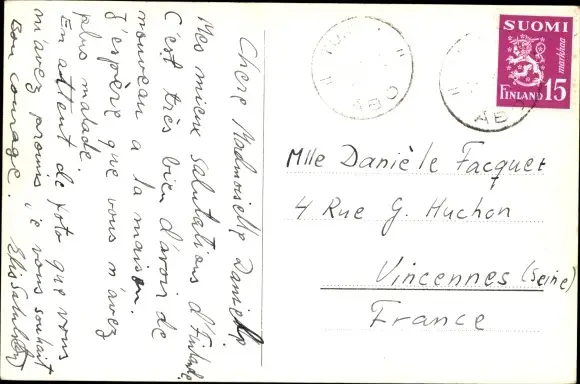 Chere Madmoiselle Danielle
Mes mieux Salutations d'Finlande
C'est très bien d'avoir de
nouveau a la maison.
J'espère que vous n'avez
plus malade.
En attent de foto que vous
m'avez promis, je vous souhait
Bon courage.
SUOMI
markkaa
FINLAND 15
ÅBO
ÅBO
Mlle Danièle Facquet
4 Rue G. Huchon
Vincennes (Seine)
France